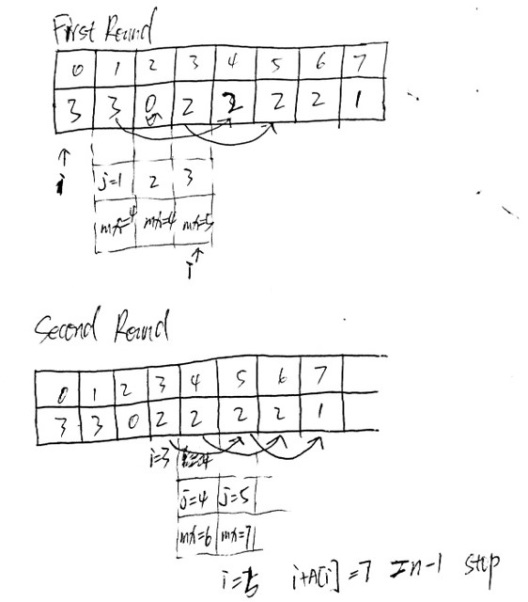 First Round
0 1 2 3 4 5 6 7
3 3 0 2 2 2 2 1
i
j=1 2 3
mx=4 mx=4 mx=5
i
Second Round
0 1 2 3 4 5 6 7
3 3 0 2 2 2 2 1
i=3
j=4 j=5
mx=6 mx=7
i=5 i+A[i]=7 =n-1 stop